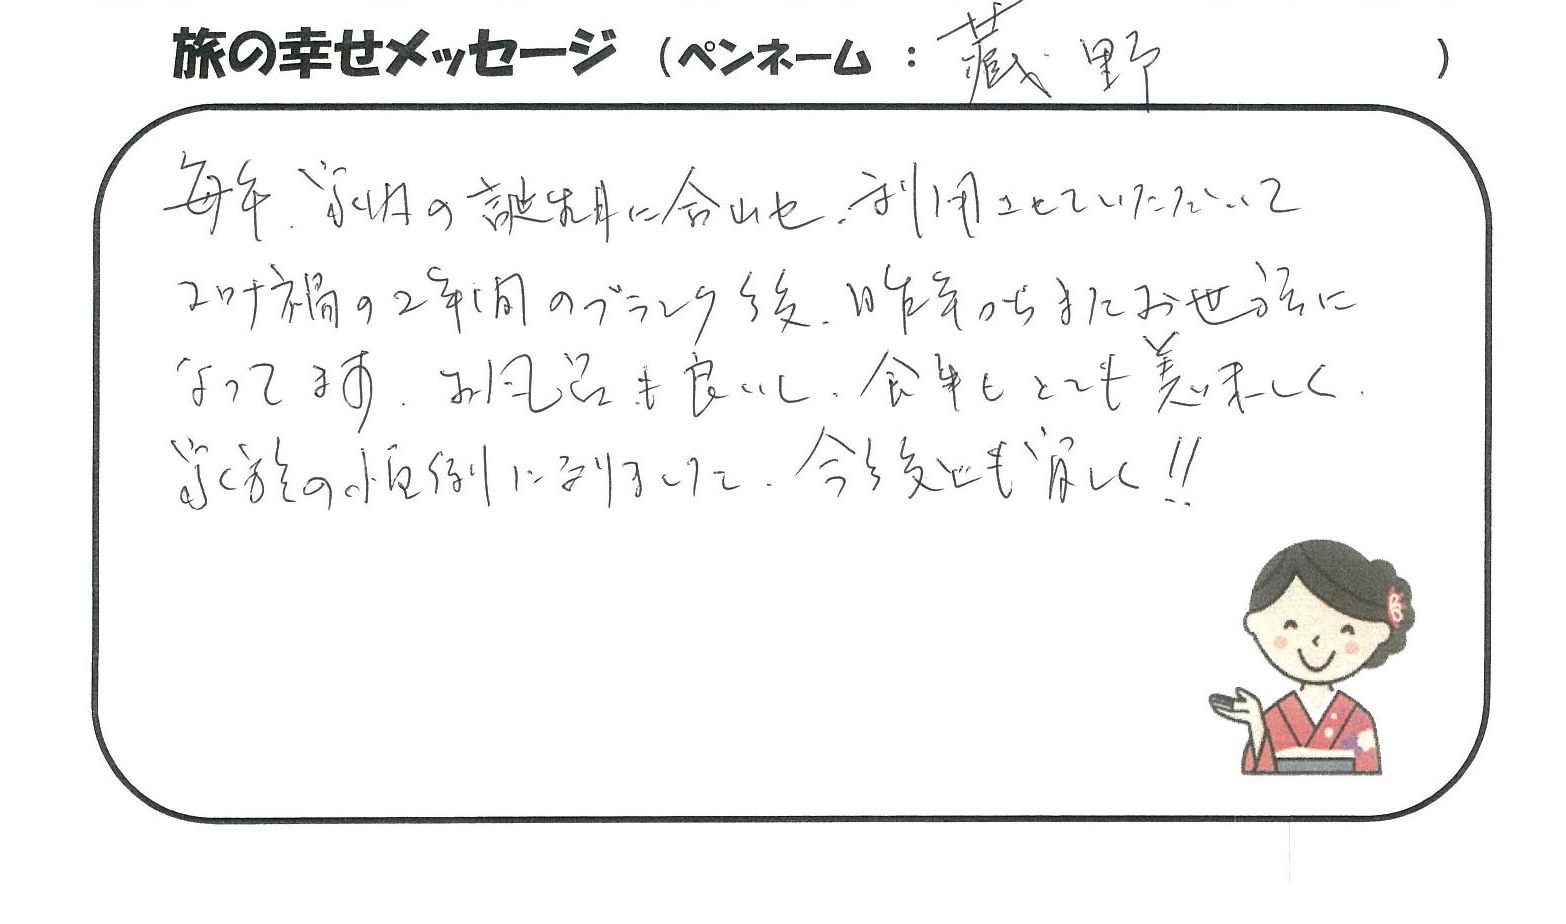 旅の幸せメッセージ (ペンネーム : 蔵野 )
毎年、家内の誕生月に合わせ、利用させていただいて
コロナ禍の2年間のブランク後、昨年からまたお世話に
なってます。お風呂も良いし、食事もとても美味しく、
家族の恒例になりまして、今後とも宜しく!!